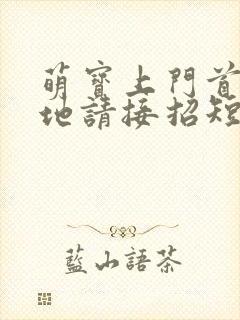 萌寶上門首
地請接招短
藍山語茶